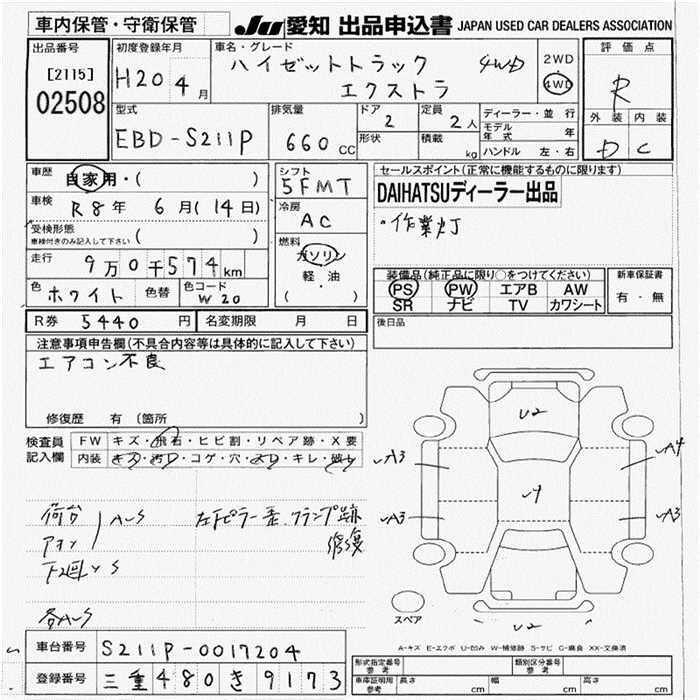 車内保管・守衛保管
JU愛知 出品申込書 JAPAN USED CAR DEALERS ASSOCIATION
出品番号
[2115]
02508
初度登録年月
H20 4月
車名・グレード
ハイゼットトラック 4WD
エクストラ
2WD
4WD
評価点
R
外装 内装
D C
型式
EBD-S211P
排気量
660 CC
ドア
2
形状
定員
2人
積載
kg
ディーラー・並行
モデル年式 年
ハンドル 左・右
車歴
自家用・( )
車検 R8年 6月(14日)
受検形態
車検付きのみ記入して下さい ( )
走行 9万0千574km
色 ホワイト 色替
色コード
W20
シフト
5FMT
冷房
AC
燃料
ガソリン
軽・油
( )
セールスポイント(正常に機能するものに限ります)
DAIHATSUディーラー出品
・作業灯
装備品(純正品に限り○をつけてください)
PS PW エアB AW
SR ナビ TV カワシート
新車保証書
有・無
R券 5440円 名変期限 月 日
後日品
注意事項申告欄(不具合内容等は具体的に記入して下さい)
エアコン不良
修復歴 有 〔箇所 〕
検査員記入欄
FW キズ・飛石・ヒビ割・リペア跡・X要
内装 キズ・汚れ・コゲ・穴・スレ・キレ・破れ
荷台
アオリ
AUS
下回 S
各AUS
左 ピラー歪 クランプ跡
修復
U2
A3
A4
A3
A3
U2
スペア
A-キズ E-エクボ U-凹み W-補修跡 S-サビ C-腐食 XX-交換済
車台番号 S211P-0017204
登録番号 三重480き9173
形式指定番号 参考
類別区分番号 参考
車庫証明用 参考
長さ cm 幅 cm 高さ cm